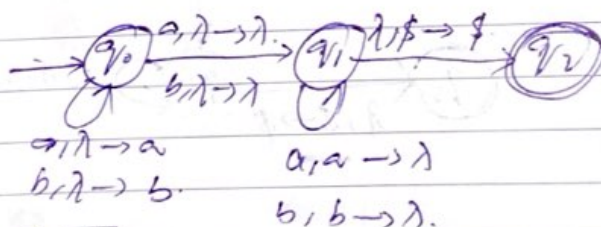 q₀ a,λ→λ. q₁ λ,$→$ q₂
b,λ→λ
a,λ→a a,a→λ
b,λ→b. b,b→λ.